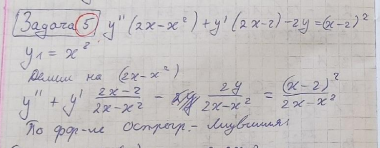 Задача 5. y'' (2x-x²) + y' (2x-2) - 2y = (x-2)²
y₁ = x²
Делим на (2x-x²)
y'' + y' \frac{2x-2}{2x-x²} - \frac{2y}{2x-x²} = \frac{(x-2)²}{2x-x²}
По фор-ле Острогр.-Лиувилля: